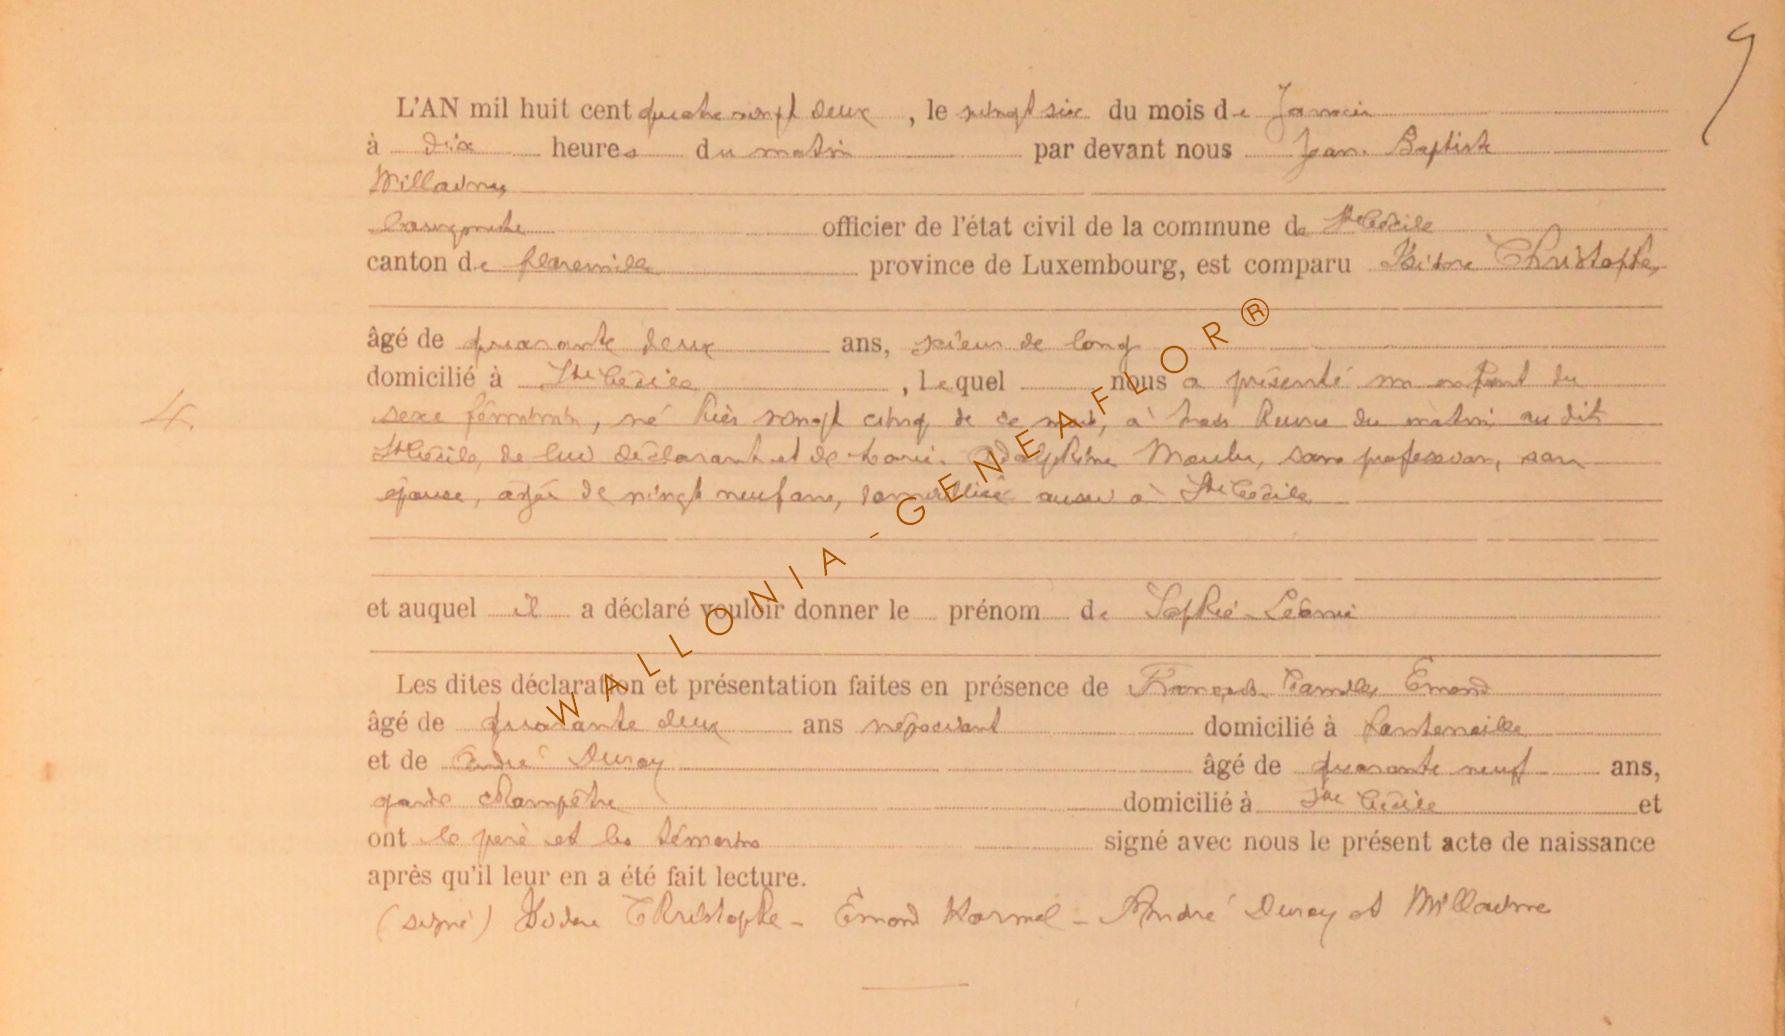 9
L'AN mil huit cent quatre vingt deux, le vingt six du mois de Janvier
à dix heures du matin par devant nous Jean Baptiste
Willaume
Bourgmestre officier de l'état civil de la commune de Ste Cécile
canton de Florenville province de Luxembourg, est comparu Isidore Christophe,
âgé de quarante deux ans, scieur de long
domicilié à Ste Cécile, lequel nous a présenté un enfant du
4.
sexe féminin, né hier vingt cinq de ce mois, à trois heures du matin, au dit
Ste Cécile, de lui déclarant et de Marie Adolphine Moulu, sans profession, son
épouse, agée de vingt neuf ans, domiciliée aussi à Ste Cécile
et auquel il a déclaré vouloir donner le prénom de Sophie-Léonie
Les dites déclaration et présentation faites en présence de François Camille Emond
âgé de quarante deux ans négociant domicilié à Fontenoille
et de André Duroy âgé de quarante neuf ans,
garde champêtre domicilié à Ste Cécile et
ont le père et les témoins signé avec nous le présent acte de naissance
après qu'il leur en a été fait lecture.
(signé) Isidore Christophe - Emond - André Duroy et Willaume
WALLONIA-GENEAFLOR®